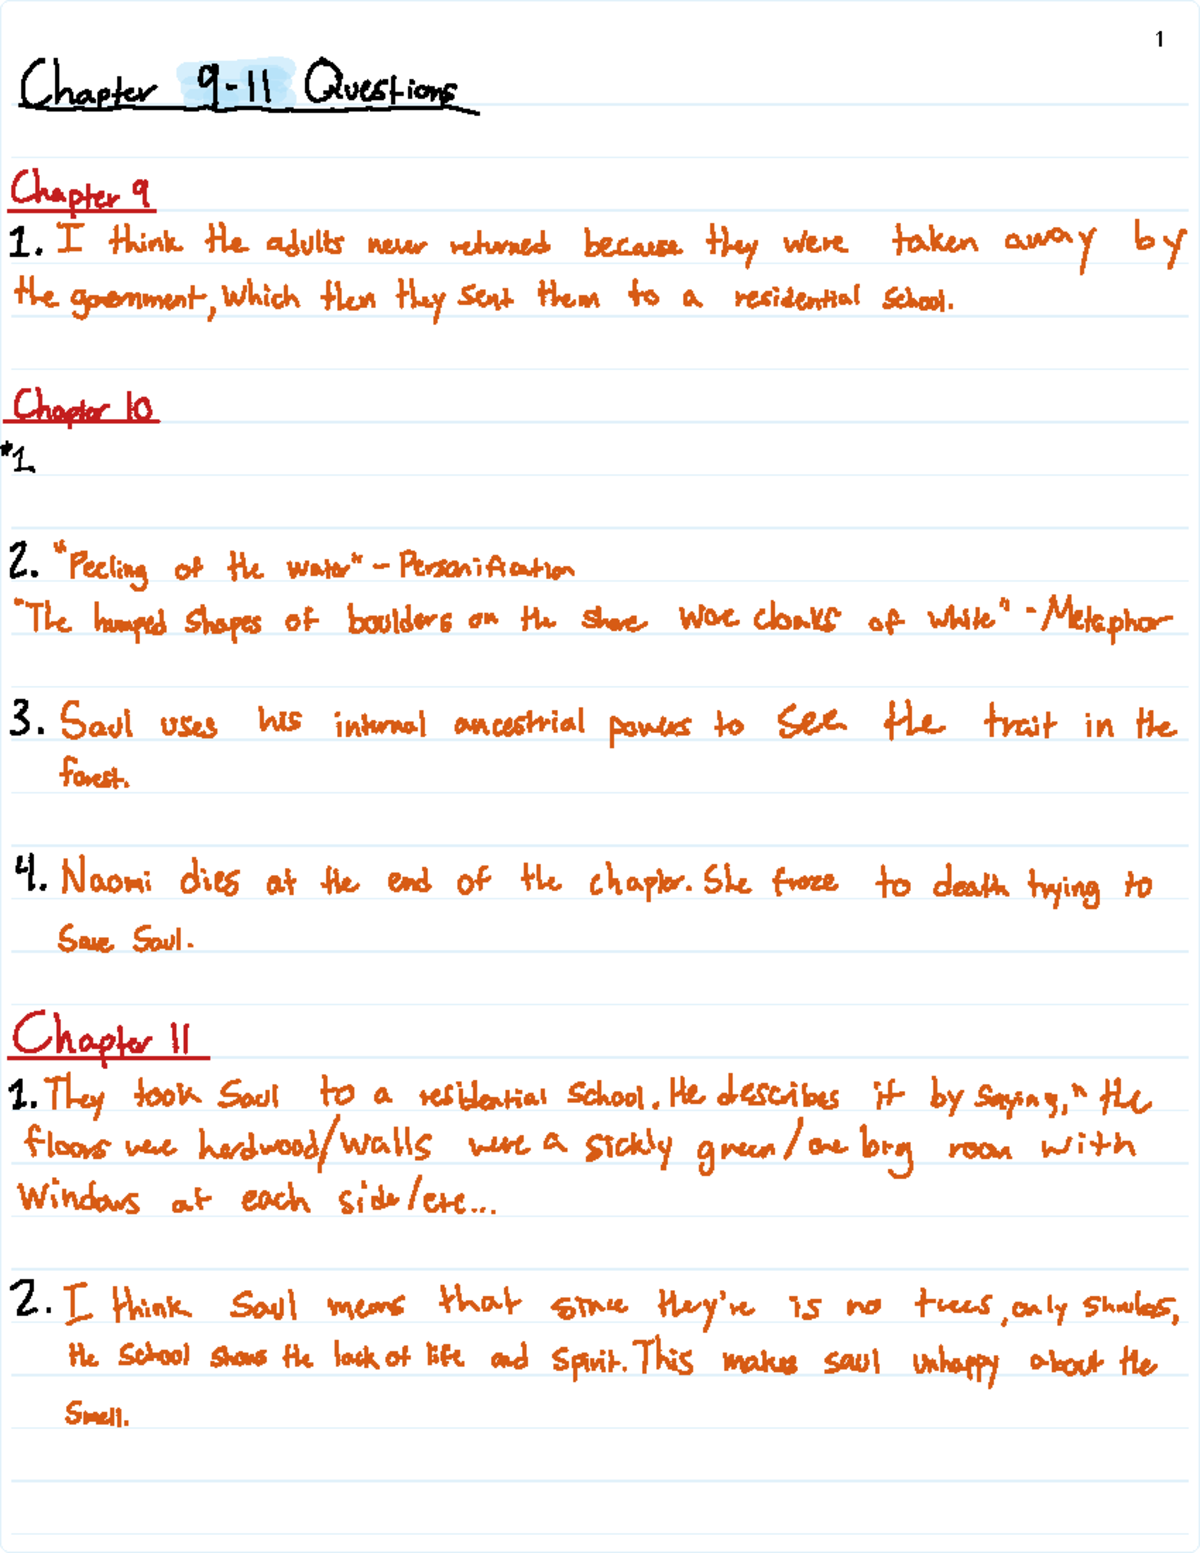 1
Chapter 9-11 Questions
Chapter 9
1. I think the adults never returned because they were taken away by
the government, which then they sent them to a residential school.
Chapter 10
*1.
2. "Peeling of the water" - Personification
"The humped shapes of boulders on the shore wore cloaks of white" - Metaphor
3. Saul uses his internal ancestrial powers to see the trait in the
forest.
4. Naomi dies at the end of the chapter. She froze to death trying to
save Saul.
Chapter 11
1. They took Saul to a residential school. He describes it by saying, "the
floors were hardwood/walls were a sickly green/one big room with
windows at each side/etc...
2. I think Saul means that since they're is no trees, only shrubs,
the school shows the lack of life and spirit. This makes saul unhappy about the
smell.